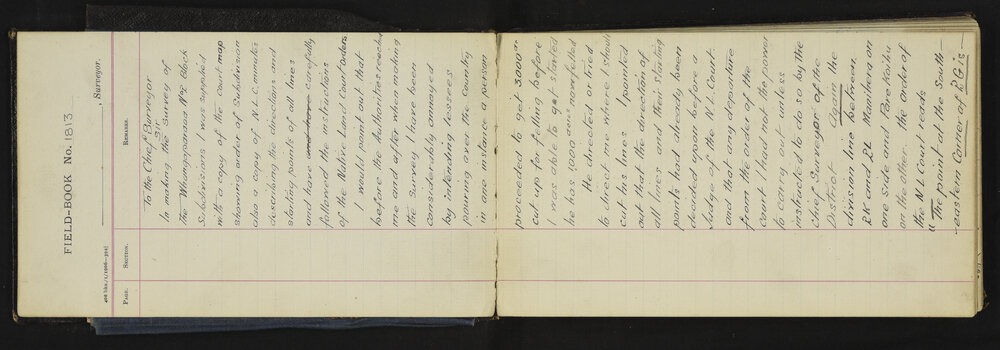 FIELD-BOOK No. 1813
, Surveyor.
400 bks./1/1906—305]
PAGE. SECTION. REMARKS.
To the Chief Surveyor
Sir
In making the Survey of
the Whangaroamea No 2 Block
Subdivisions I was supplied
with a copy of the Court map
showing order of Subdivision
also a copy of N.L.C. minutes
describing the directions and
starting points of all lines
and have carefully
followed the instructions
of the Native Land Court orders
I would point out that
before the Authorities reached
me and after when making
the Survey I have been
considerably annoyed
by intending lessees
roaming over the Country
in one instance a person
proceeded to get 3000 ac
cut up for felling before
I was able to get started
he has 1000 acres now felled
He directed or tried
to direct me where I should
cut his lines I pointed
out that the direction of
all lines and their starting
points had already been
decided upon before a
Judge of the N.L. Court.
and that any departure
from the order of the
Court I had not the power
to carry out unless
instructed to do so by the
Chief Surveyor of the
District Again the
division line between.
2K and 2L on
one side and
on the other. the order of
the N.L Court reads
"The point at the South-
-eastern Corner of 2G is